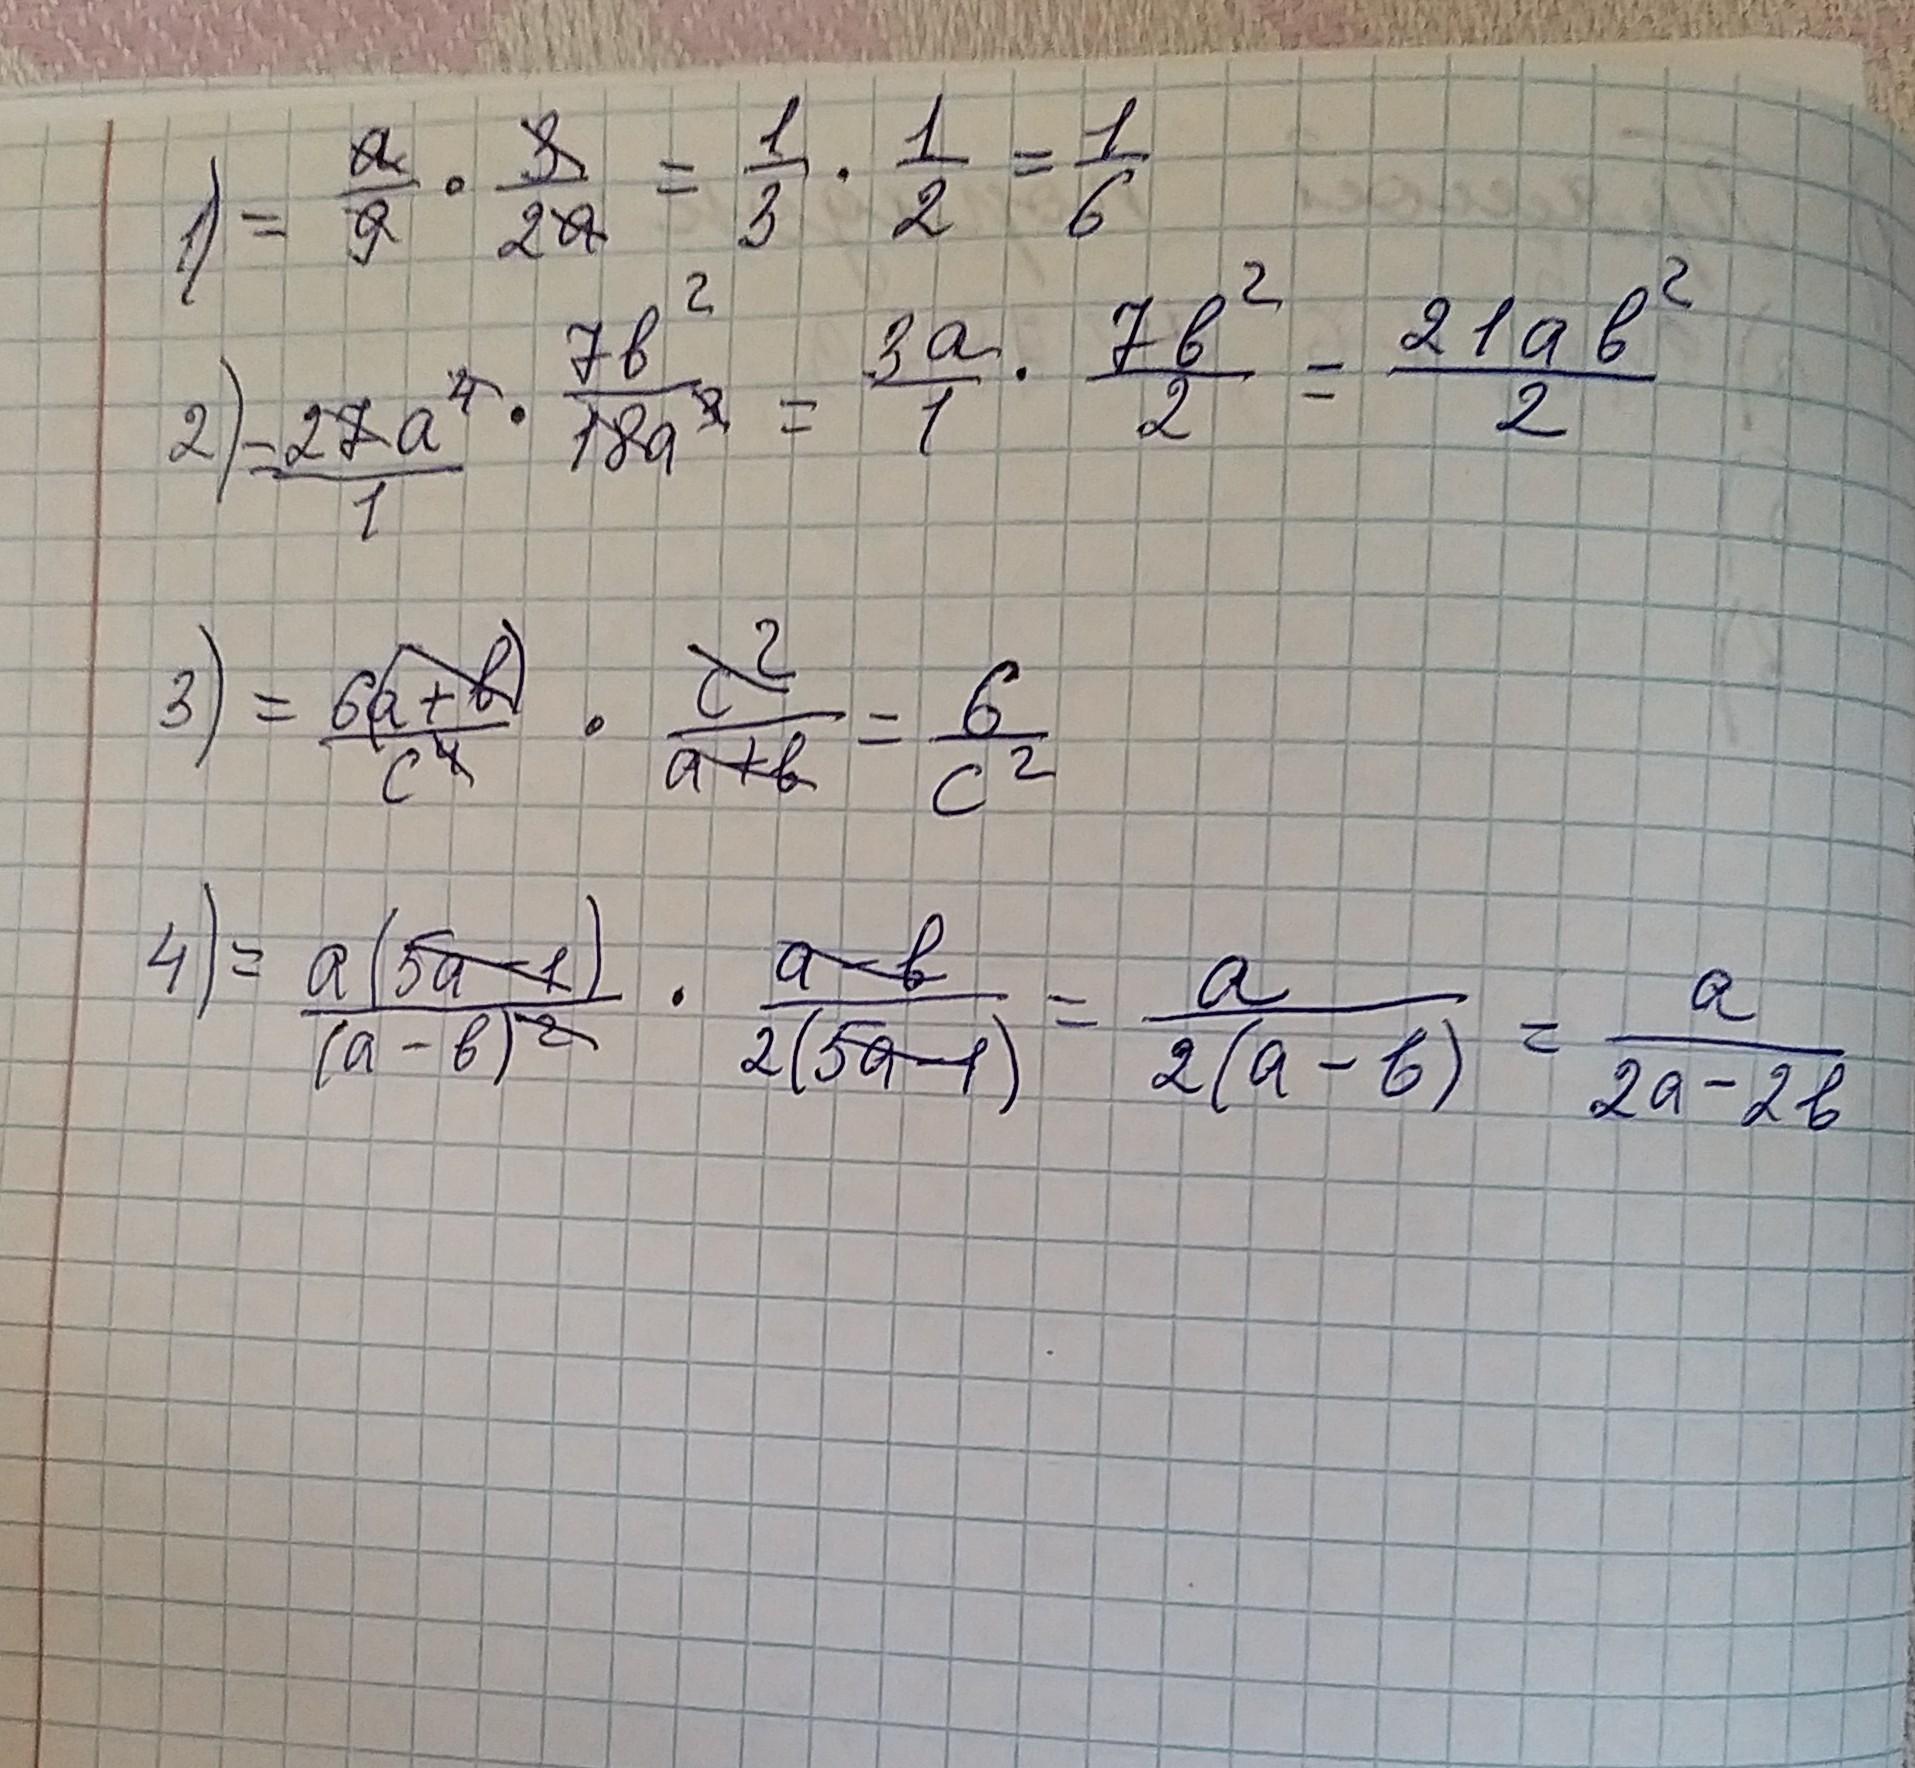 1) = a/9 · 3/2a = 1/3 · 1/2 = 1/6
2) = 27a⁴/1 · 7b²/18a³ = 3a/1 · 7b²/2 = 21ab²/2
3) = 6(a+b)/c⁴ · c²/a+b = 6/c²
4) = a(5a-1)/(a-b)² · a-b/2(5a-1) = a/2(a-b) = a/2a-2b